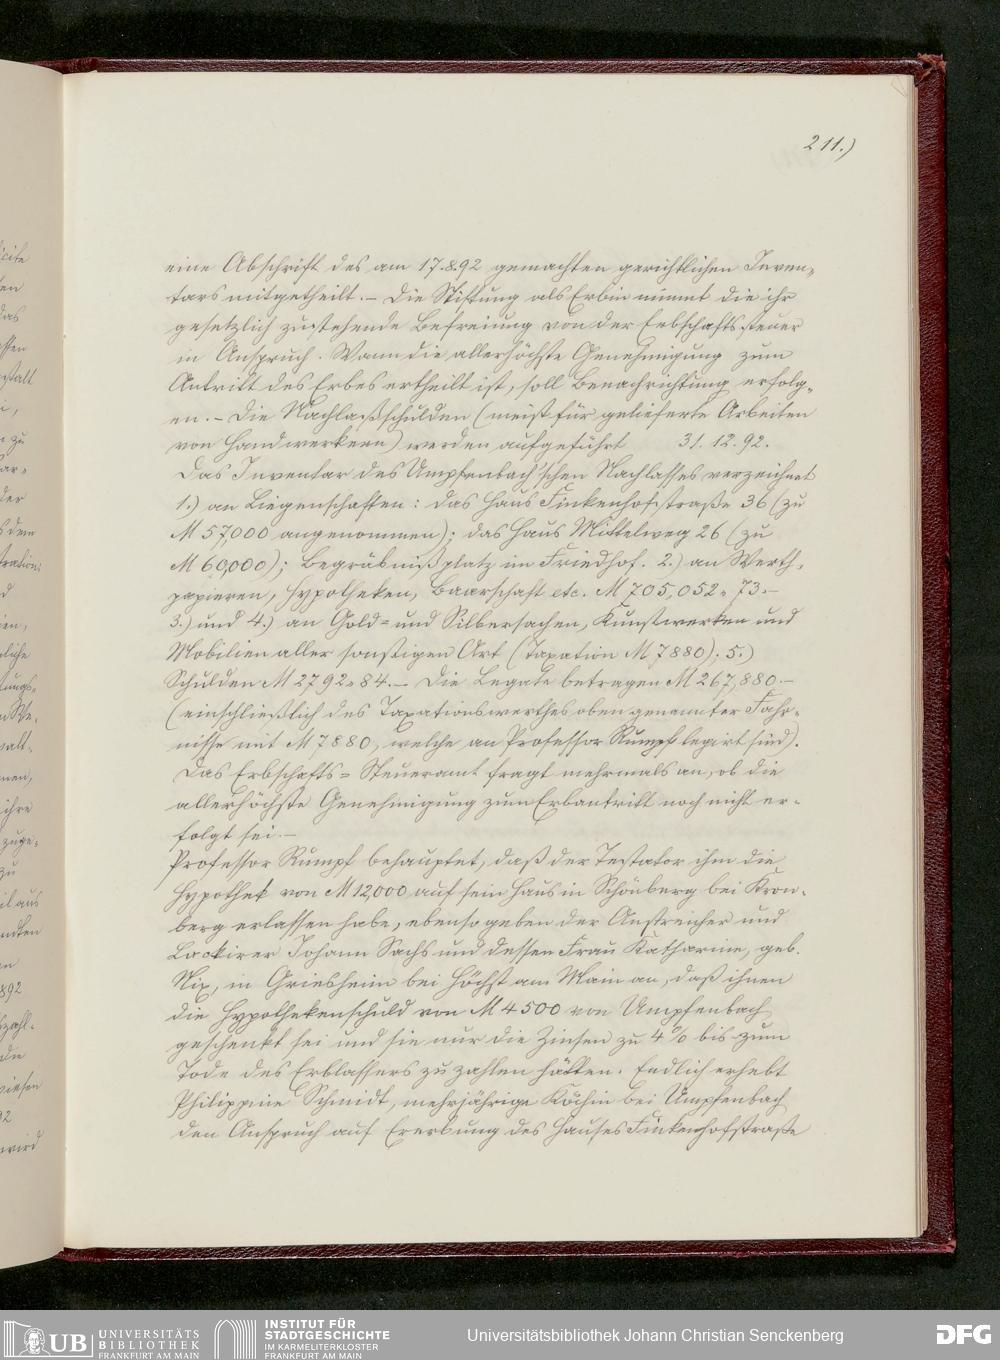 211.)
eine Abschrift des am 17.8.92 gemachten gerichtlichen Inven-
tars mitgetheilt. – Die Stiftung als Erbin nimmt die ihr
gesetzlich zustehende Befreiung von der Erbschaftssteuer
in Anspruch. Wann die allerhöchste Genehmigung zum
Antritt des Erbes ertheilt ist, soll Benachrichtung erfolg-
en. – Die Nachlaßschulden (meist für gelieferte Arbeiten
von Handwerkern) werden aufgeführt 31.12.92.
Das Inventar des Umpfenbach'schen Nachlasses verzeichnet
1.) an Liegenschaften: das Haus Finkenhofstraße 36 (zu
M 57,000 angenommen); das Haus Mittelweg 26 (zu
M 60,000); Begräbnißplatz im Friedhof. 2.) an Werth-
papieren, Hypotheken, Baarschaft etc. M 705,052 „ 73. –
3.) und 4.) an Gold- und Silbersachen, Kunstwerken und
Mobilien aller sonstigen Art (Taxation M 7880). 5.)
Schulden M 2792 „ 84. – Die Legate betragen M 267,880. –
(einschließlich des Taxationswerthes oben genannter Fahr-
nisse mit M 7880, welche an Professor Rumpf legirt sind).
Das Erbschafts-Steueramt fragt mehrmals an, ob die
allerhöchste Genehmigung zum Erbantritt noch nicht er-
folgt sei. –
Professor Rumpf behauptet, daß der Testator ihm die
Hypothek von M 12,000 auf sein Haus in Schönberg bei Kron-
berg erlassen habe, ebenso geben der Anstreicher und
Lackirer Johann Sachs und dessen Frau Katharine, geb.
Nix, in Griesheim bei Höchst am Main an, daß ihnen
die Hypothekenschuld von M 4500 von Umpfenbach
geschenkt sei und sie nur die Zinsen zu 4% bis zum
Tode des Erblassers zu zahlen hätten. Endlich erhebt
Philippine Schmidt, mehrjährige Köchin bei Umpfenbach
den Anspruch auf Ererbung des Hauses Finkenhofstraße
UB
UNIVERSITÄTS
BIBLIOTHEK
FRANKFURT AM MAIN
INSTITUT FÜR
STADTGESCHICHTE
IM KARMELITERKLOSTER
FRANKFURT AM MAIN
Universitätsbibliothek Johann Christian Senckenberg
DFG